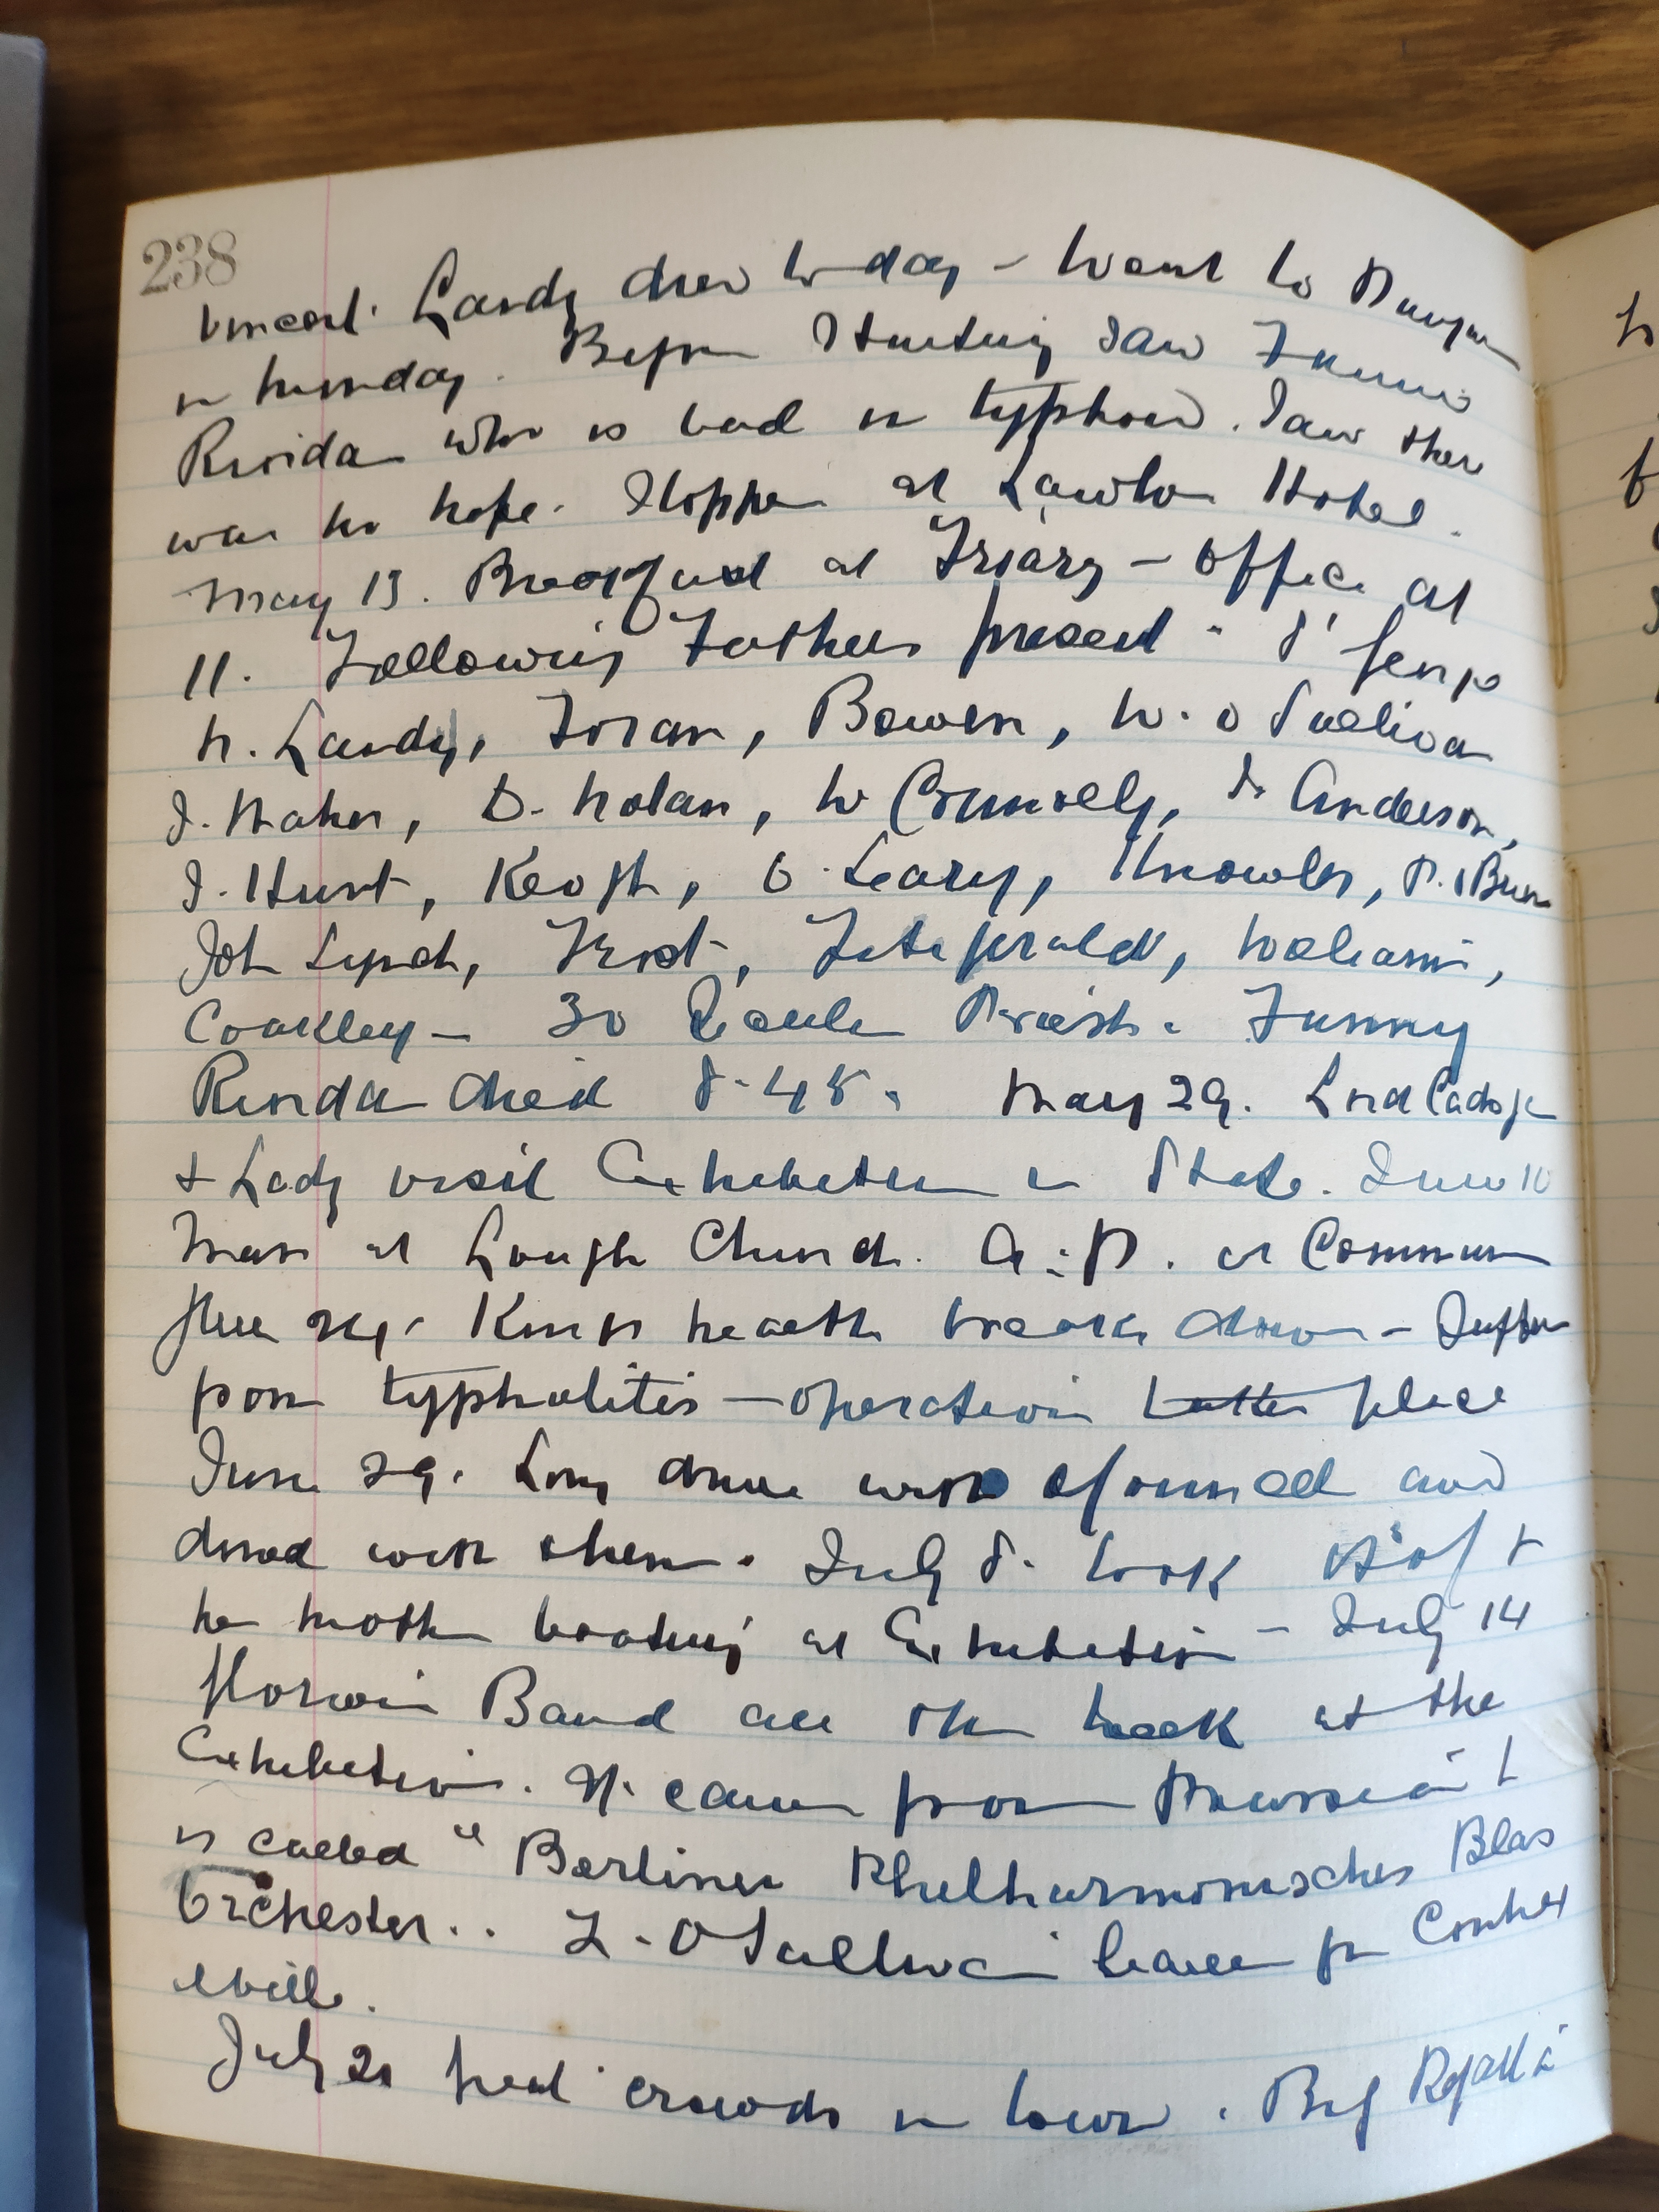 238
Vincent Landy died to-day - Went to
on Tuesday. Before starting saw Fannie
Rinida who is bad in typhoid. Saw there
was no hope. Stopped at Lawlor Hotel.
May 13. Breakfast at Friary - Office at
11. Following Fathers present -
N. Landy, Foran, Bowen, W. O Sullivan
J. Maher, D. Nolan, W Connolly, Dr Anderson,
J. Hunt, Keogh, O. Leary, Knowles,
John Lynch, Frost, Fitzgerald, Williams,
Coakley - 30 Secular Priests. Fanny
Rinda died 8.45. May 29. Lord Cadogan
& Lady visit Exhibition in State. June 10
Mass at Lough Church. at Commun
June 24. Kings health breaks down - Suffers
from typhalitis - operation place
June 29. Long drive with and
dined with them. July 8. took &
her mother boating at Exhibition - July 14
Band all the week at the
Exhibition. It came from
is called "Berliner Philharmonisches Blas
Orchester.. L. O Sullivan leaves for
July 21 great crowds in town. Big Regatta